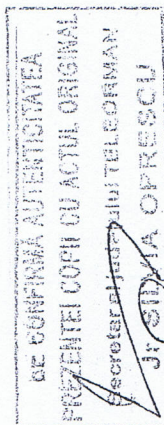 SE CONFIRMA AUTENTICITATEA
PREZENTEI COPII CU ACTUL ORIGINAL
Secretarul Județului TELEORMAN
Jr. SILVIA OPRESCU